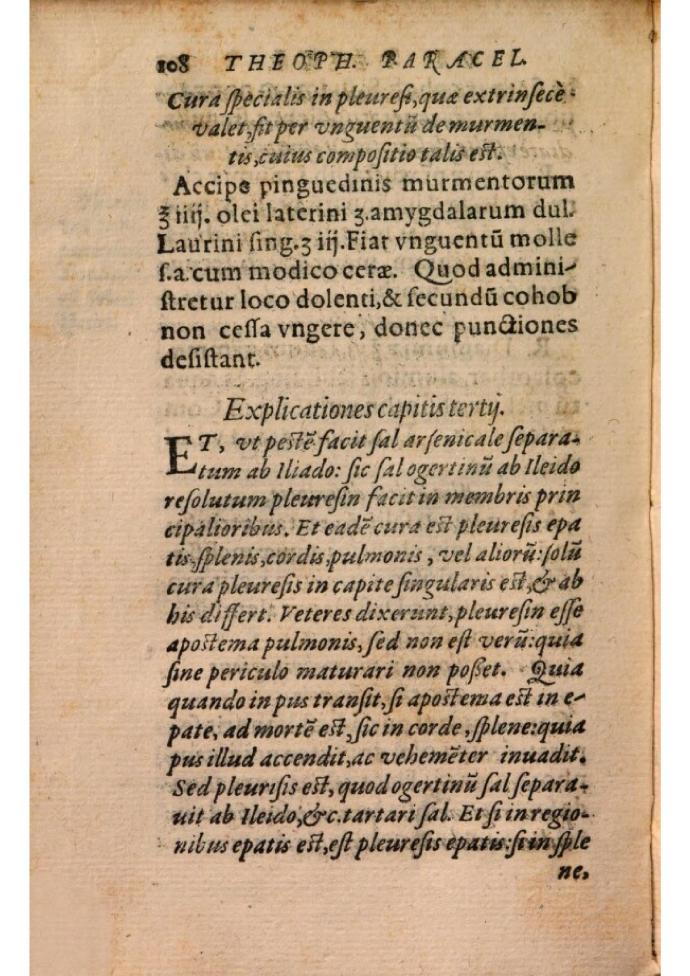 108 THEOPH. PARACEL.
Cura ſpecialis in pleureſi, quæ extrinſecè
valet, fit per vnguentū de murmen-
tis, cuius compoſitio talis eſt.
Accipe pinguedinis murmentorum
℥ iiij. olei laterini ʒ. amygdalarum dul.
Laurini ſing. ʒ iij. Fiat vnguentū molle
ſ. a. cum modico ceræ. Quod admini-
ſtretur loco dolenti, & ſecundū cohob
non ceſſa vngere, donec punctiones
deſiſtant.
Explicationes capitis tertij.
ET, vt peſtē facit ſal arſenicale ſepara-
tum ab Iliado: ſic ſal ogertinū ab Ileido
reſolutum pleureſin facit in membris prin
cipalioribus. Et eadē cura eſt pleureſis epa
tis, ſplenis, cordis, pulmonis, vel aliorū: ſolū
cura pleureſis in capite ſingularis eſt, & ab
his differt. Veteres dixerunt, pleureſin eſſe
apoſtema pulmonis, ſed non eſt verū: quia
ſine periculo maturari non poſſet. Quia
quando in pus tranſit, ſi apoſtema eſt in e-
pate, ad mortē eſt, ſic in corde, ſplene: quia
pus illud accendit, ac vehemēter inuadit.
Sed pleuriſis eſt, quod ogertinū ſal ſepara-
uit ab Ileido, &c. tartari ſal. Et ſi in regio-
nibus epatis eſt, eſt pleureſis epatis: ſi in ſple
ne,